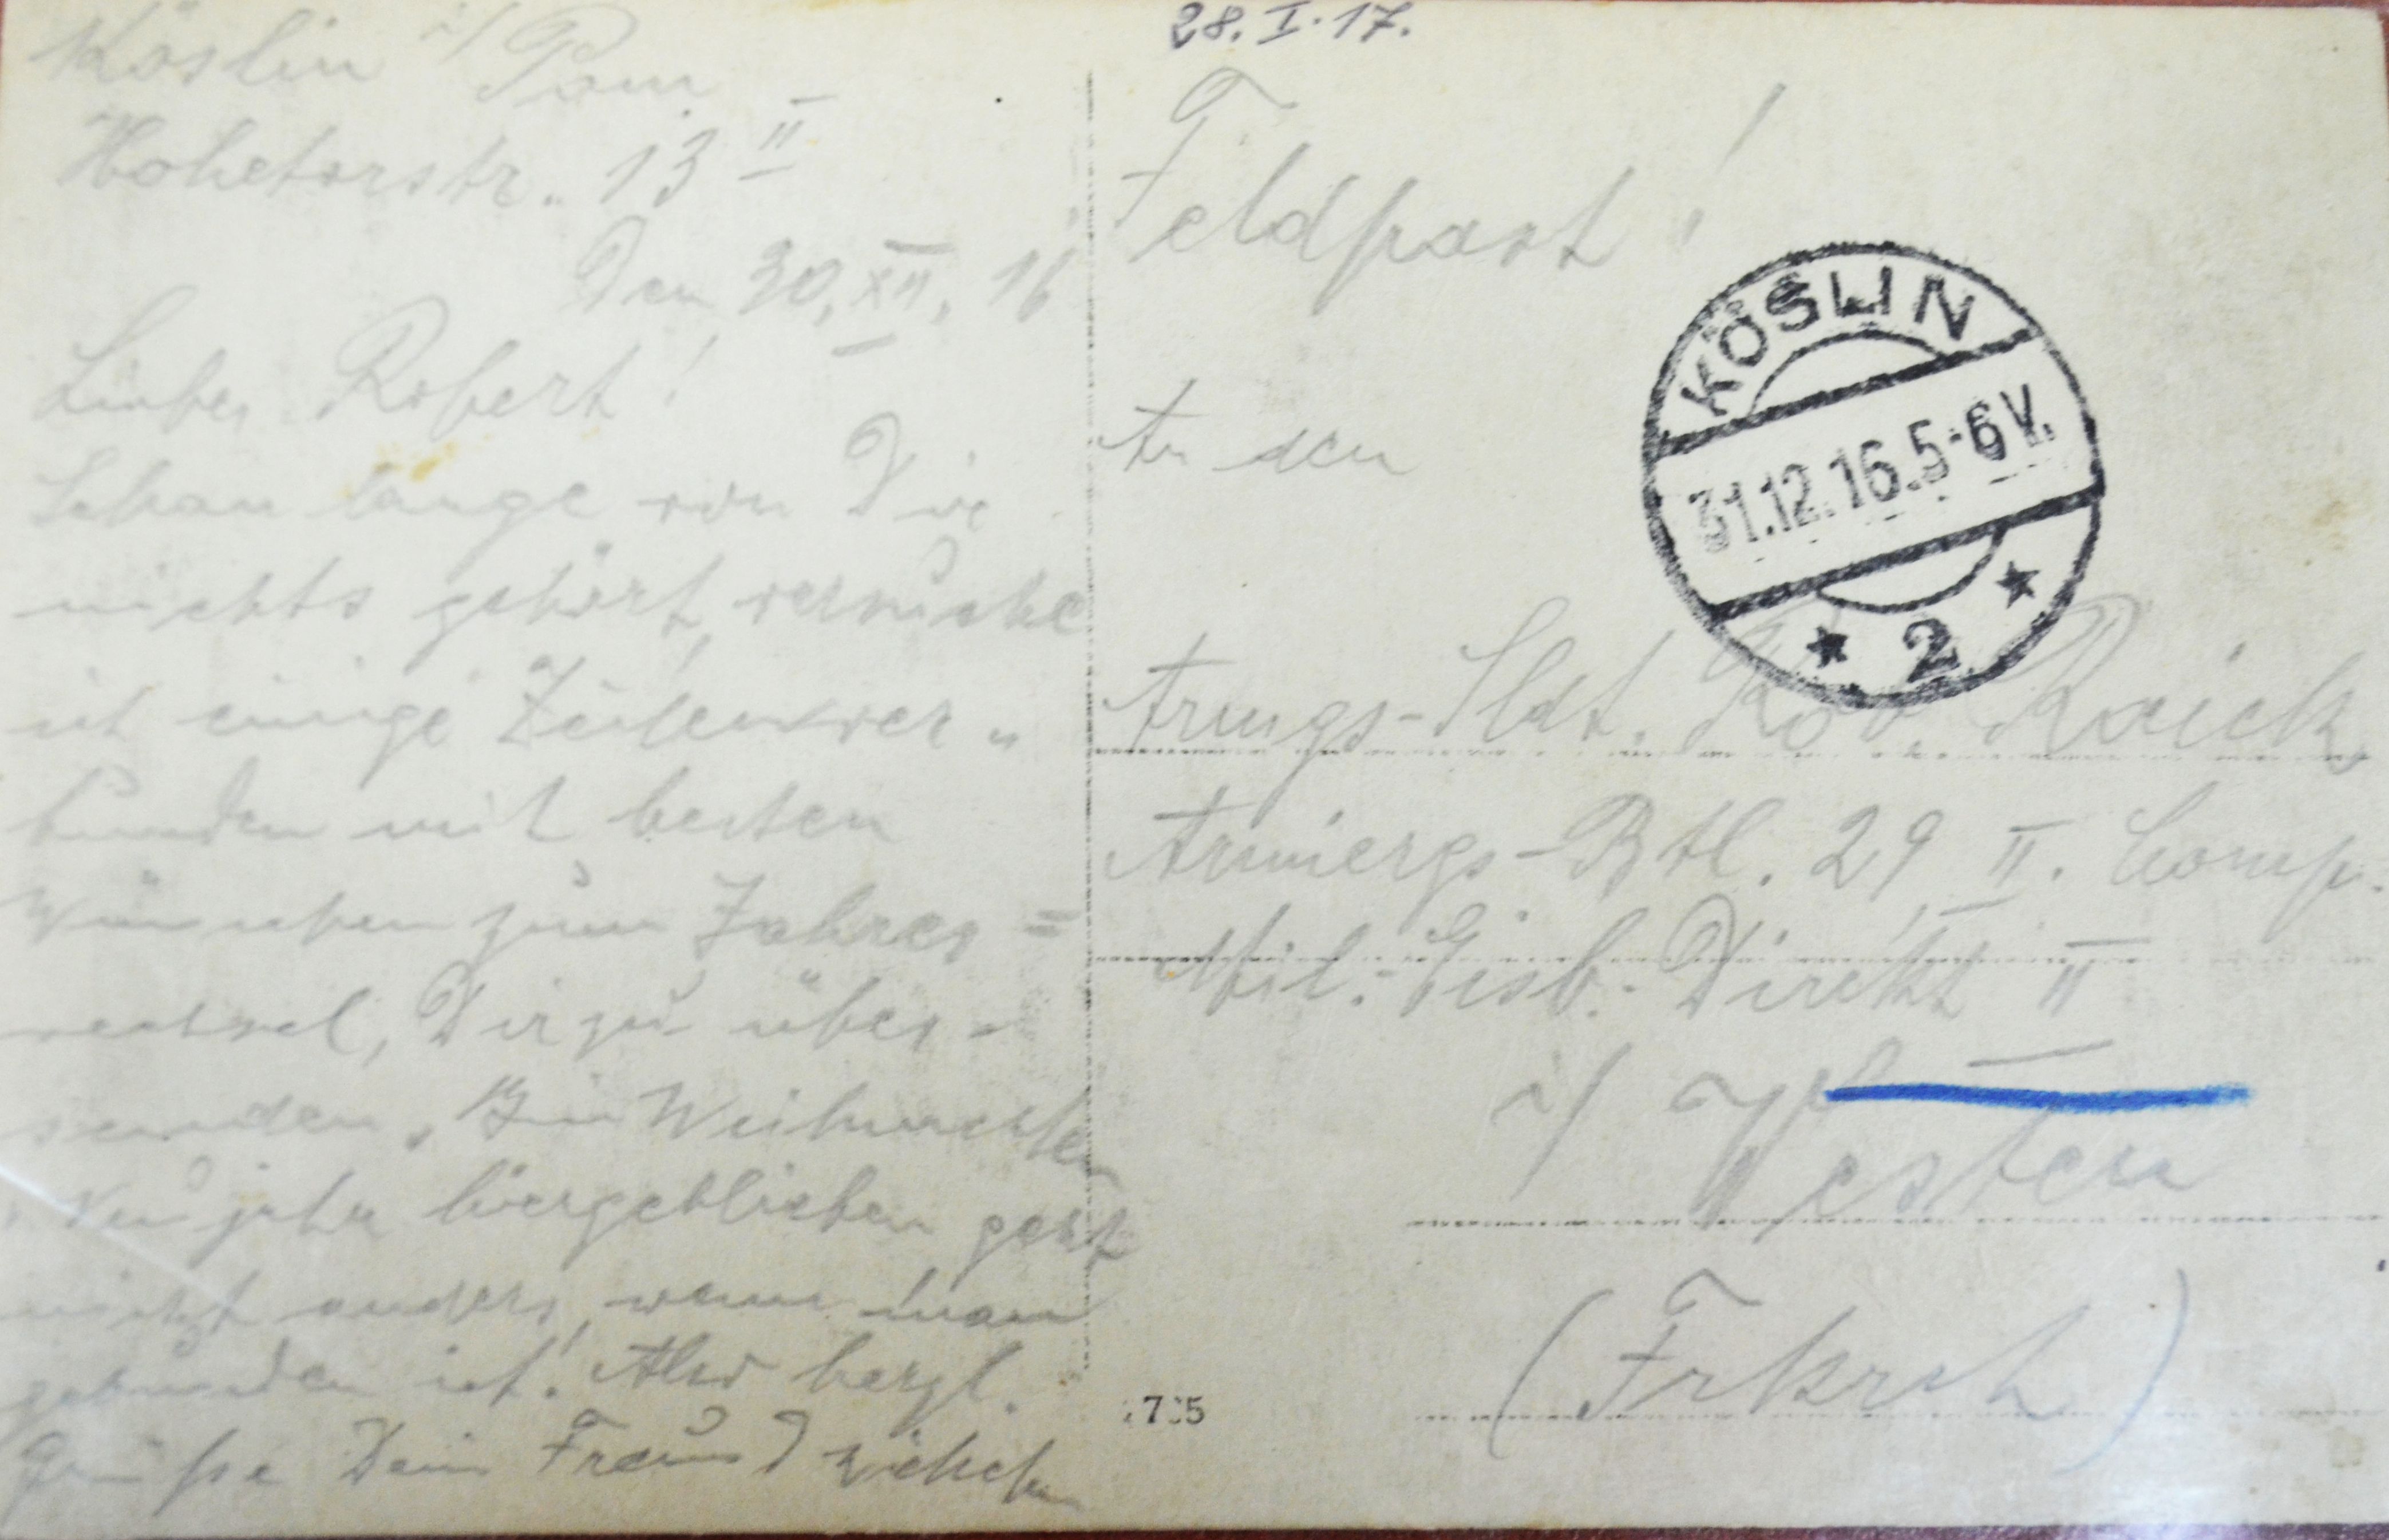 Köslin i/ Pom
Hohetorstr. 13 II
Den 30. XII. 16
Lieber Robert!
Schon lange von Dir
nichts gehört, versuche
ich einige Zeilen ver„
bunden mit besten
Wünschen zum Jahres=
wechsel, Dir zu über-
senden. Bin Weihnachten
Neujahr hiergeblieben geht
nicht anders, wenn man
gebunden ist! Also herzl.
Grüße Dein Freund
28. I. 17.
Feldpost!
An den
KÖSLIN
31.12.16.5-6 V.
* 2 *
Armgs-Sldt. Rob. Raick
Armiergs-Btl. 29 II. Comp.
Mil.-Eisb. Direkt II
i/
Westen
(Frkrch)